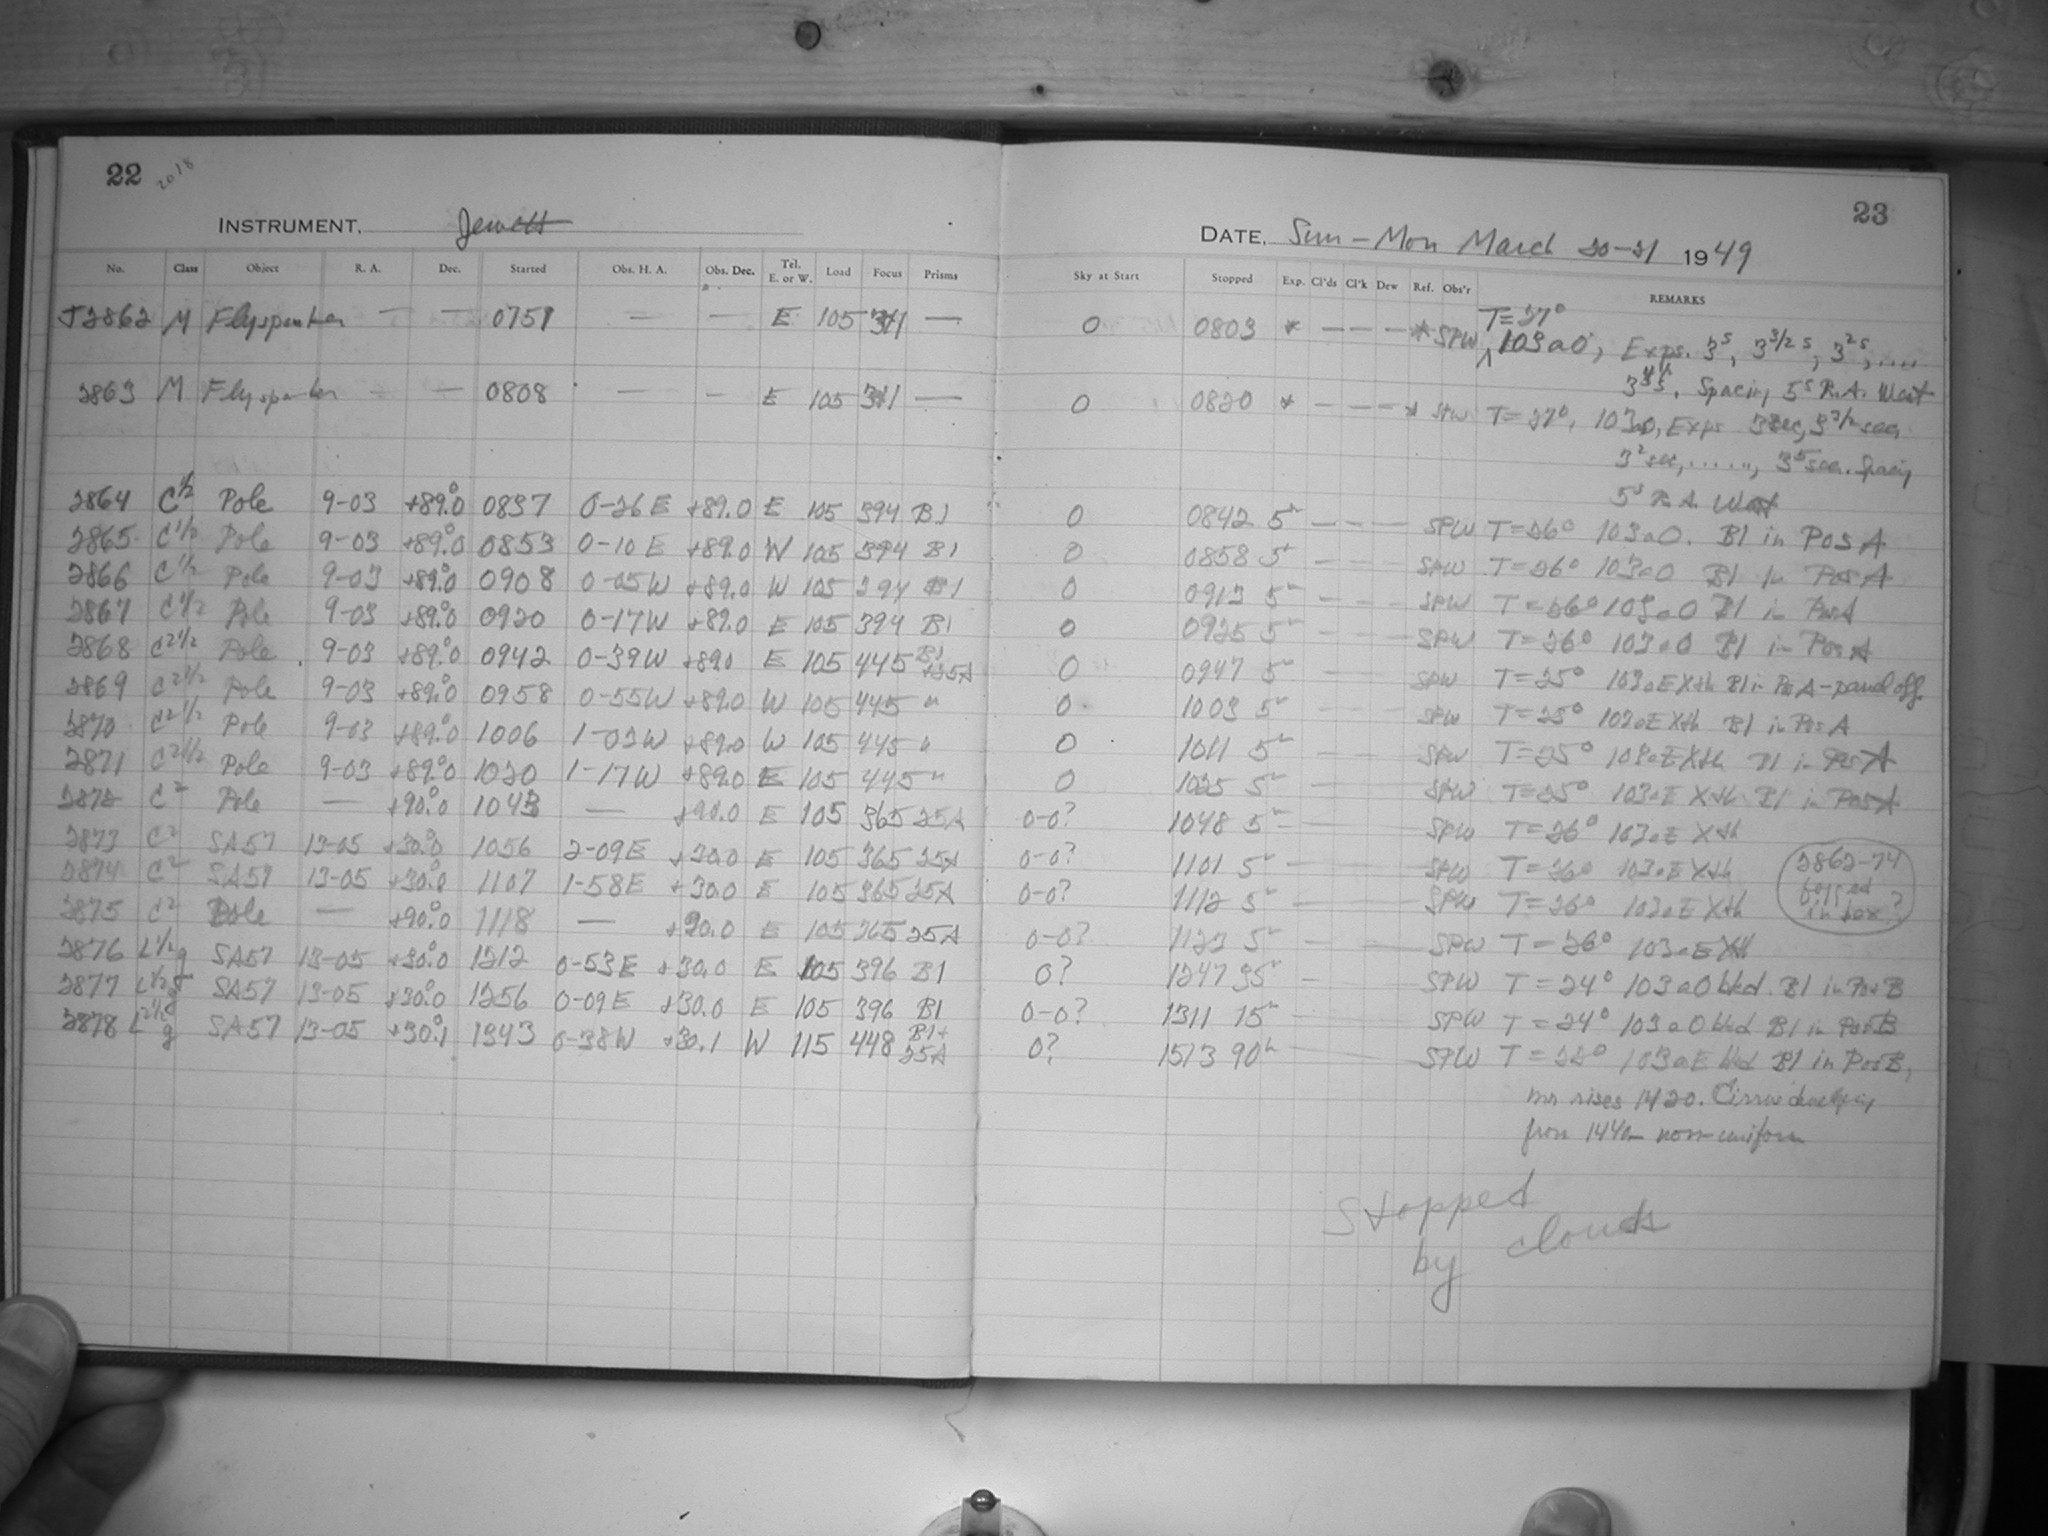 22 2018
INSTRUMENT. Jewett
No. Class Object R. A. Dec. Started Obs. H. A. Obs. Dec. Tel. E. or W. Load Focus Prisms
J2862 M Flyspanker — — 0751 — — E 105 341 —
2863 M Flyspanker — — 0808 — — E 105 341 —
2864 C1/2 Pole 9-03 +89.0° 0837 0-26E +89.0 E 105 394 B1
2865 C1/2 Pole 9-03 +89.0° 0853 0-10E +89.0 W 105 394 B1
2866 C1/2 Pole 9-03 +89.0° 0908 0-05W +89.0 W 105 394 B1
2867 C1/2 Pole 9-03 +89.0° 0920 0-17W +89.0 E 105 394 B1
2868 C2 1/2 Pole 9-03 +89.0° 0942 0-39W +89.0 E 105 445 B1+25A
2869 C2 1/2 Pole 9-03 +89.0° 0958 0-55W +89.0 W 105 445 "
2870 C2 1/2 Pole 9-03 +89.0° 1006 1-03W +89.0 W 105 445 "
2871 C2 1/2 Pole 9-03 +89.0° 1020 1-17W +89.0 E 105 445 "
2872 C2 Pole — +90.0° 1043 — +90.0 E 105 365 25A
2873 C2 SA57 13-05 +30.0° 1056 2-09E +30.0 E 105 365 25A
2874 C2 SA57 13-05 +30.0° 1107 1-58E +30.0 E 105 365 25A
2875 C2 Pole — +90.0° 1118 — +90.0 E 105 365 25A
2876 L1/2g SA57 13-05 +30.0° 1212 0-53E +30.0 E 105 396 B1
2877 L1/2g SA57 13-05 +30.0° 1256 0-09E +30.0 E 105 396 B1
2878 L2 1/2g SA57 13-05 +30.1° 1343 0-38W +30.1 W 115 448 B1+25A
23
DATE. Sun - Mon March 20-21 1949
Sky at Start Stopped Exp. Cl'ds Cl'k Dew Ref. Obs'r REMARKS
0 0803 * — — — * SPW T=27° 103aO, Exps. 3s, 3 3/2 s, 3 2s, ....
Spacing 5s R.A. West
0 0820 * — — — * SPW T=27°, 103aO, Exps 3sec, 3 3/2 sec,
3 2 sec, ......, 3 5 sec. Spacing
5s R.A. West
0 0842 5m — — — SPW T=26° 103aO. B1 in Pos A
0 0858 5m — — — SPW T=26° 103aO B1 in Pos A
0 0913 5m — — — SPW T=26° 103aO B1 in Pos A
0 0925 5m — — — SPW T=26° 103aO B1 in Pos A
0 0947 5m — — — SPW T=25° 103aE Xth B1 in Pos A - panel off
0 1003 5m — — — SPW T=25° 103aE Xth B1 in Pos A
0 1011 5m — — — SPW T=25° 103aE Xth B1 in Pos A
0 1025 5m — — — SPW T=25° 103aE Xth B1 in Pos A
0-0? 1048 5m — — — SPW T=26° 103aE Xth
0-0? 1101 5m — — — SPW T=26° 103aE Xth
0-0? 1112 5m — — — SPW T=26° 103aE Xth
2862-74
fogged
in box?
0-0? 1123 5m — — — SPW T=26° 103aE Xth
0? 1247 35m — — — SPW T=24° 103aO bkd. B1 in Pos B
0-0? 1311 15m — — — SPW T=24° 103aO bkd B1 in Pos B
0? 1513 90m — — — SPW T=22° 103aE bkd B1 in Pos B,
mn rises 1420. Cirrus developing
from 1440 non-uniform
Stopped
by clouds